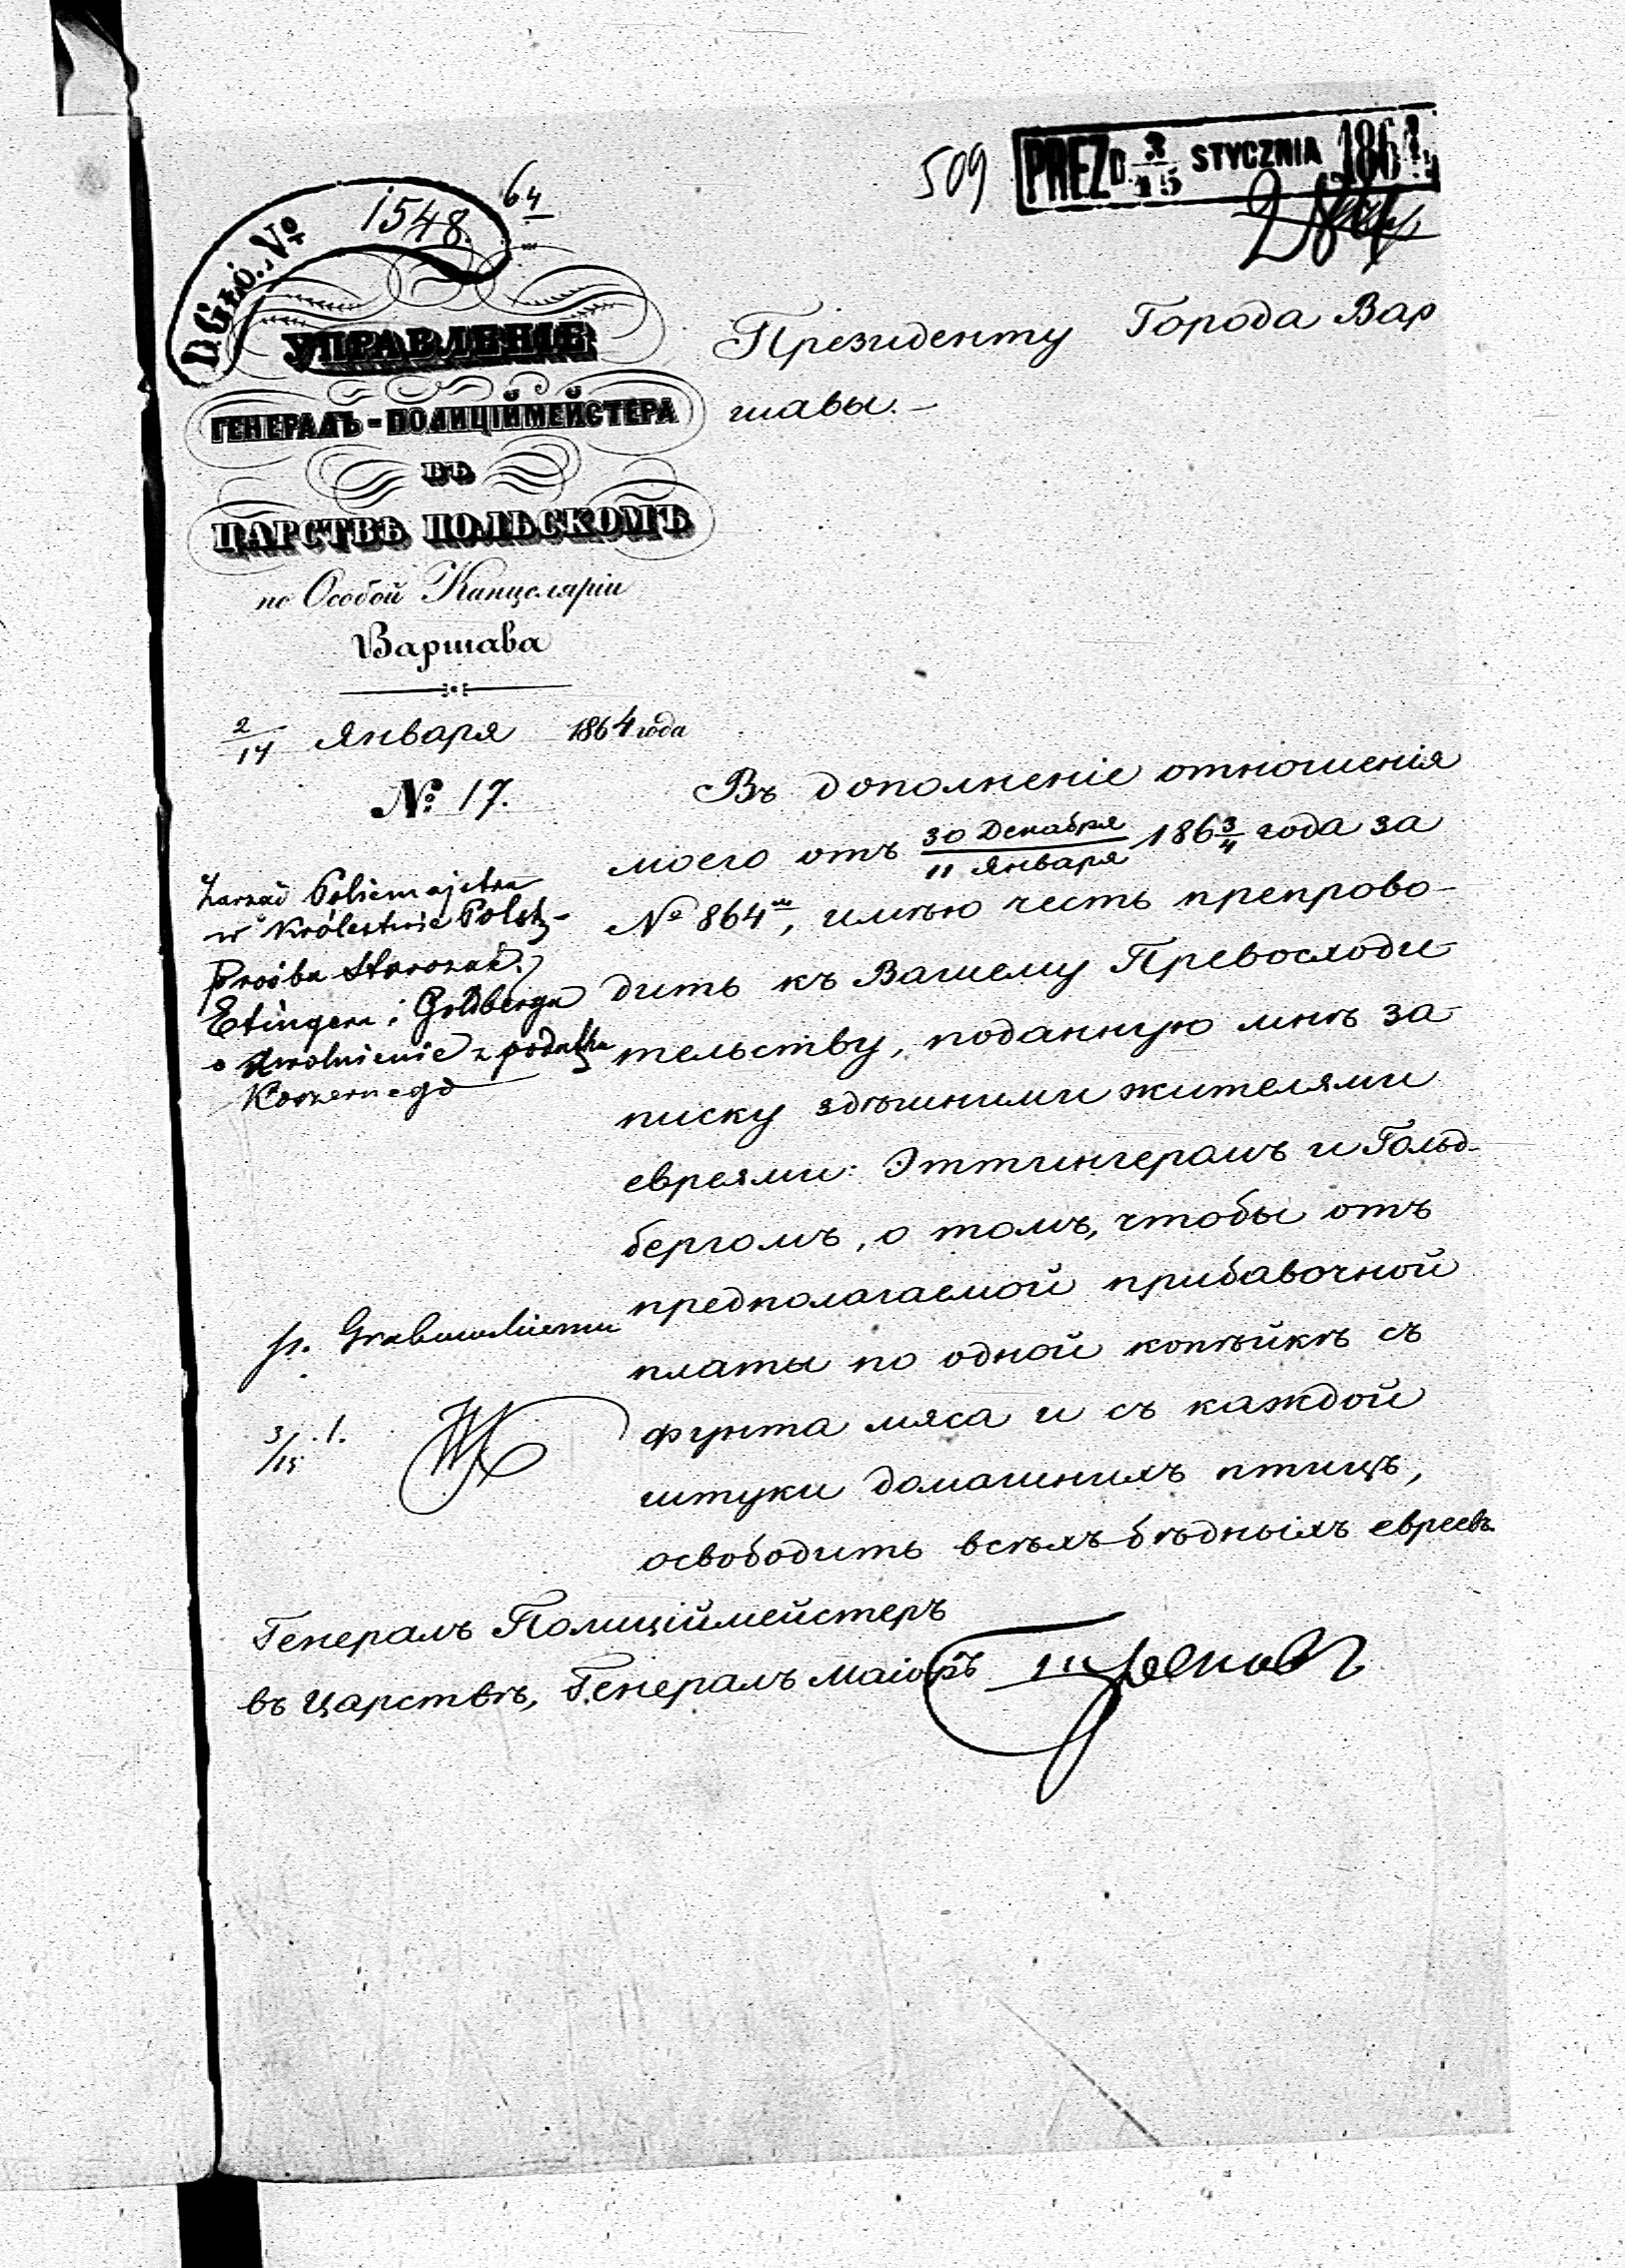 509 PREZD. 3/15 STYCZNIA 1864
D. Głó. № 1548. 64
УПРАВЛЕНІЕ
ГЕНЕРАЛЪ-ПОЛИЦІЙМЕЙСТЕРА
ВЪ
ЦАРСТВѢ ПОЛЬСКОМЪ
по Особой Канцеляріи
Варшава
2/14 Января 1864 года
№ 17.
Президенту Города Вар
шавы.—
Zarząd Policmajstra
w Królestwie Polsk-
Prośba Starozak.
Etingera i Goldberga
o uwolnienie z podatku
Koszernego
p. Grabowskiemu
3/15 .1.
Въ дополненіе отношенія
моего отъ 30 Декабря/11 Января 186 3/4 года за
№ 864м, имѣю честь препрово-
дить къ Вашему Превосходи-
тельству, поданную мнѣ за-
писку здѣшними жителями
евреями: Эттингеромъ и Гольд-
бергомъ, о томъ, чтобы отъ
предполагаемой прибавочной
платы по одной копѣйкѣ съ
фунта мяса и съ каждой
штуки домашнихъ птицъ,
освободить всѣхъ бѣдныхъ евреевъ.
Генералъ Полиціймейстеръ
въ Царствѣ, Генералъ Маіоръ